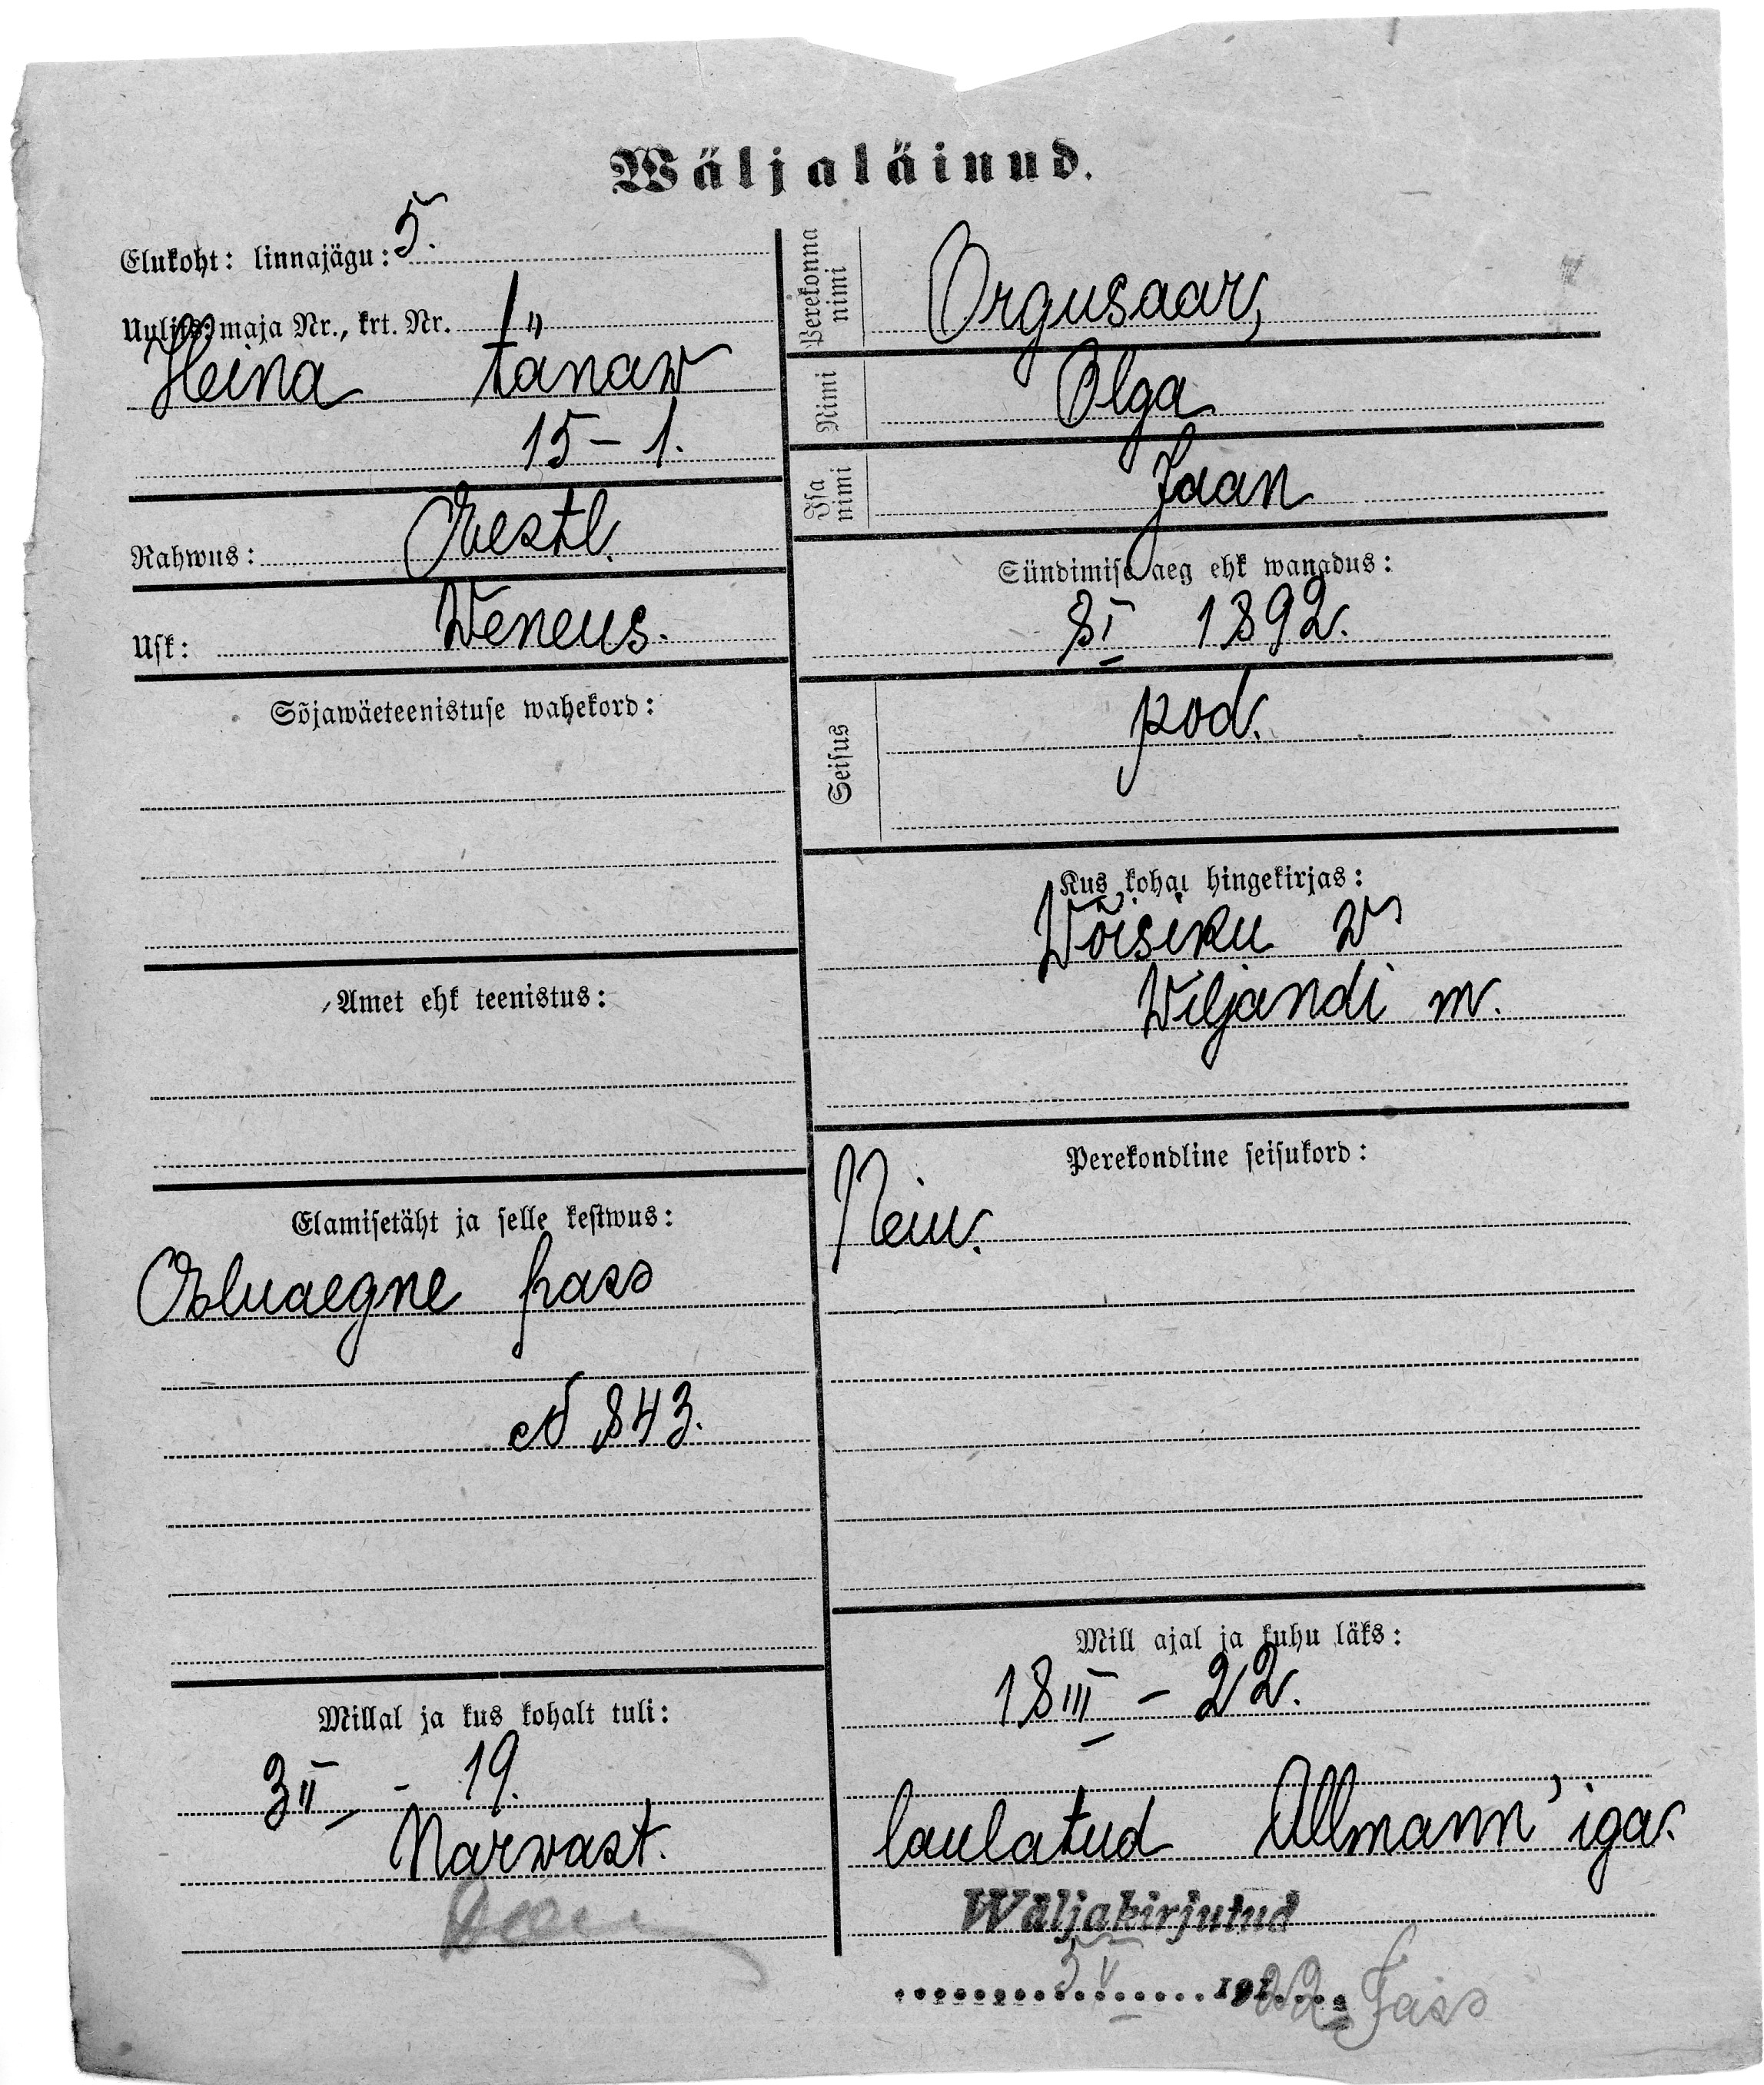 Wäljaläinud.
Elukoht: linnajägu: 5.
Uulits, maja Nr., krt. Nr.
Heina tänaw
15 – 1.
Rahwus: Eestl.
Usk: Weneus.
Sõjawäeteenistuse wahekord:
Amet ehk teenistus:
Elamisetäht ja selle kestwus:
Eluaegne pass
N 843.
Millal ja kus kohalt tuli:
3 II – 19.
Narwast.
Perekonna nimi
Orgusaar,
Nimi
Olga
Isa nimi
Jaan
Sündimise aeg ehk wanadus:
8 I 1892.
Seisus
pod.
Kus kohal hingekirjas:
Wõisiku w
Wiljandi m.
Perekondline seisukord:
Neiu.
Mill ajal ja kuhu läks:
18 III – 22.
laulatud Allmann'iga.
Wäljakirjutud
5 V 1922